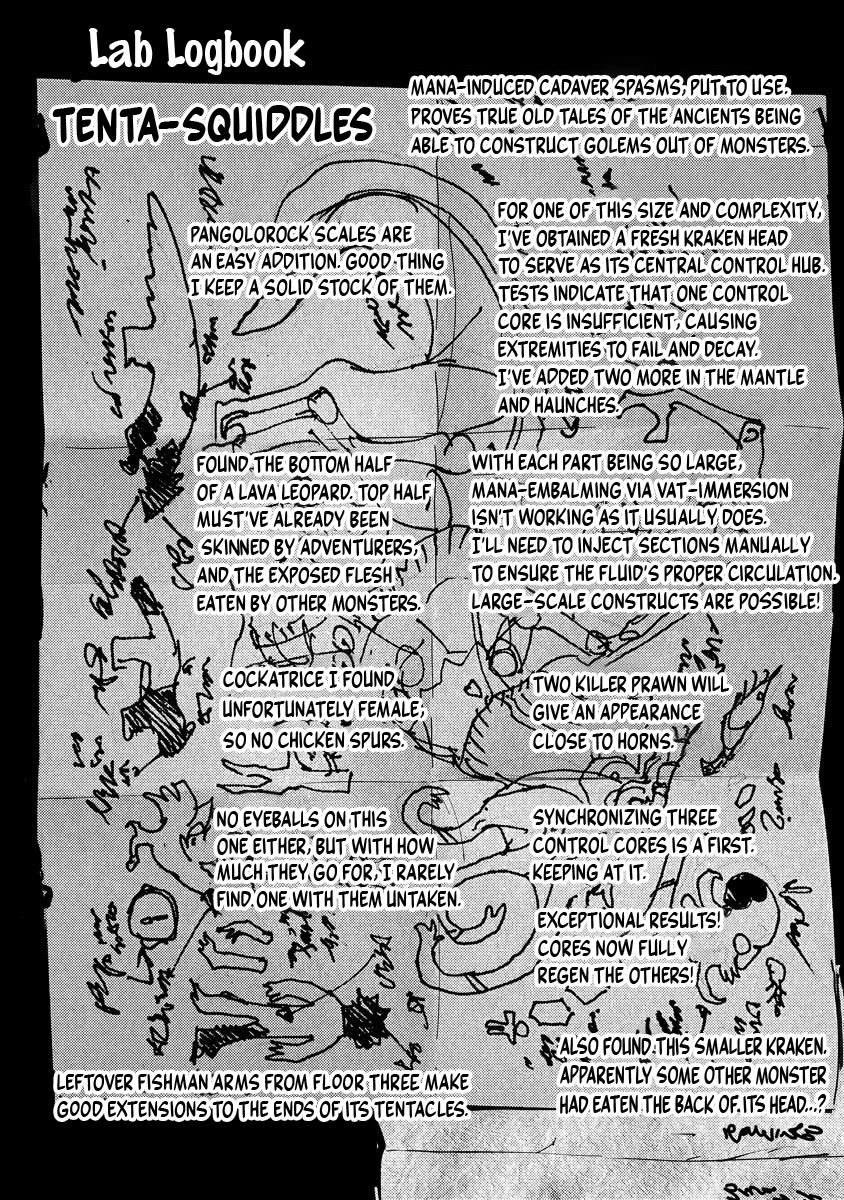 Lab Logbook
TENTA-SQUIDDLES
MANA-INDUCED CADAVER SPASMS, PUT TO USE.
PROVES TRUE OLD TALES OF THE ANCIENTS BEING
ABLE TO CONSTRUCT GOLEMS OUT OF MONSTERS.
PANGOLOROCK SCALES ARE
AN EASY ADDITION. GOOD THING
I KEEP A SOLID STOCK OF THEM.
FOR ONE OF THIS SIZE AND COMPLEXITY,
I'VE OBTAINED A FRESH KRAKEN HEAD
TO SERVE AS ITS CENTRAL CONTROL HUB.
TESTS INDICATE THAT ONE CONTROL
CORE IS INSUFFICIENT, CAUSING
EXTREMITIES TO FAIL AND DECAY.
I'VE ADDED TWO MORE IN THE MANTLE
AND HAUNCHES.
FOUND THE BOTTOM HALF
OF A LAVA LEOPARD. TOP HALF
MUST'VE ALREADY BEEN
SKINNED BY ADVENTURERS,
AND THE EXPOSED FLESH
EATEN BY OTHER MONSTERS.
WITH EACH PART BEING SO LARGE,
MANA-EMBALMING VIA VAT-IMMERSION
ISN'T WORKING AS IT USUALLY DOES.
I'LL NEED TO INJECT SECTIONS MANUALLY
TO ENSURE THE FLUID'S PROPER CIRCULATION.
LARGE-SCALE CONSTRUCTS ARE POSSIBLE!
COCKATRICE I FOUND
UNFORTUNATELY FEMALE,
SO NO CHICKEN SPURS.
TWO KILLER PRAWN WILL
GIVE AN APPEARANCE
CLOSE TO HORNS.
NO EYEBALLS ON THIS
ONE EITHER, BUT WITH HOW
MUCH THEY GO FOR, I RARELY
FIND ONE WITH THEM UNTAKEN.
SYNCHRONIZING THREE
CONTROL CORES IS A FIRST.
KEEPING AT IT.
EXCEPTIONAL RESULTS!
CORES NOW FULLY
REGEN THE OTHERS!
LEFTOVER FISHMAN ARMS FROM FLOOR THREE MAKE
GOOD EXTENSIONS TO THE ENDS OF ITS TENTACLES.
ALSO FOUND THIS SMALLER KRAKEN.
APPARENTLY SOME OTHER MONSTER
HAD EATEN THE BACK OF ITS HEAD...?